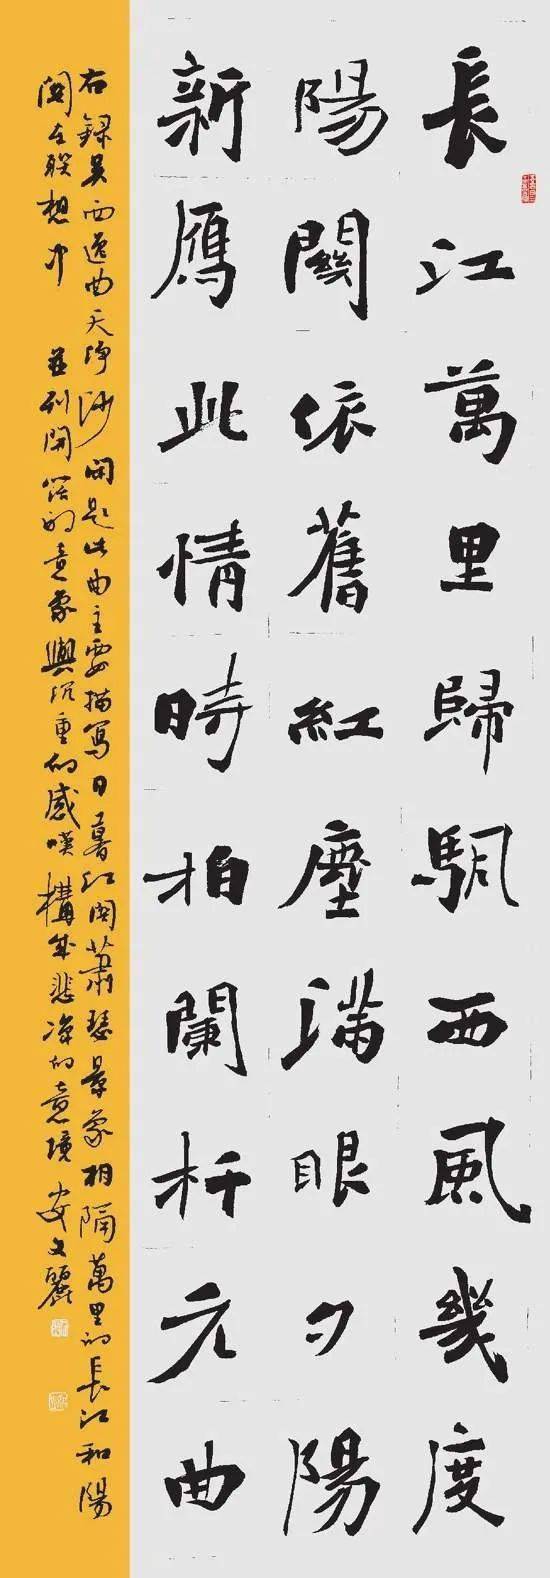 長江萬里歸颿西風幾度
陽關依舊紅塵滿眼夕陽
新鴈此情時拍闌杆元曲
右錄吳西逸曲天净沙閒題此曲主要描寫日暮江閣蕭瑟景象相隔萬里的長江和陽
關在聯想中並列開闊的意象與沉重的感嘆構成悲凉的意境安文麗